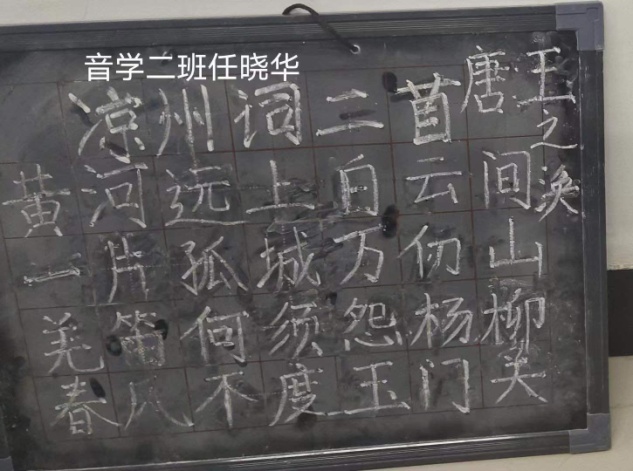 音学二班任晓华
凉州词二首 唐 王之涣
黄河远上白云间
一片孤城万仞山
羌笛何须怨杨柳
春风不度玉门关